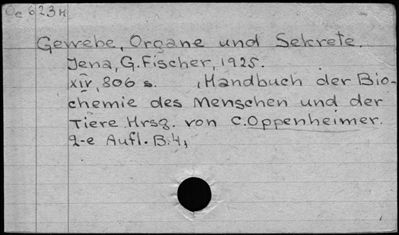 Cc 623н
Gewebe, Organe und Sekrete.
Jena, G. Fischer, 1925.
XIV, 806 s. (Handbuch der Bio-
chemie des Menschen und der
Tiere Hrsg. von C. Oppenheimer.
2-e Aufl. B. 4,